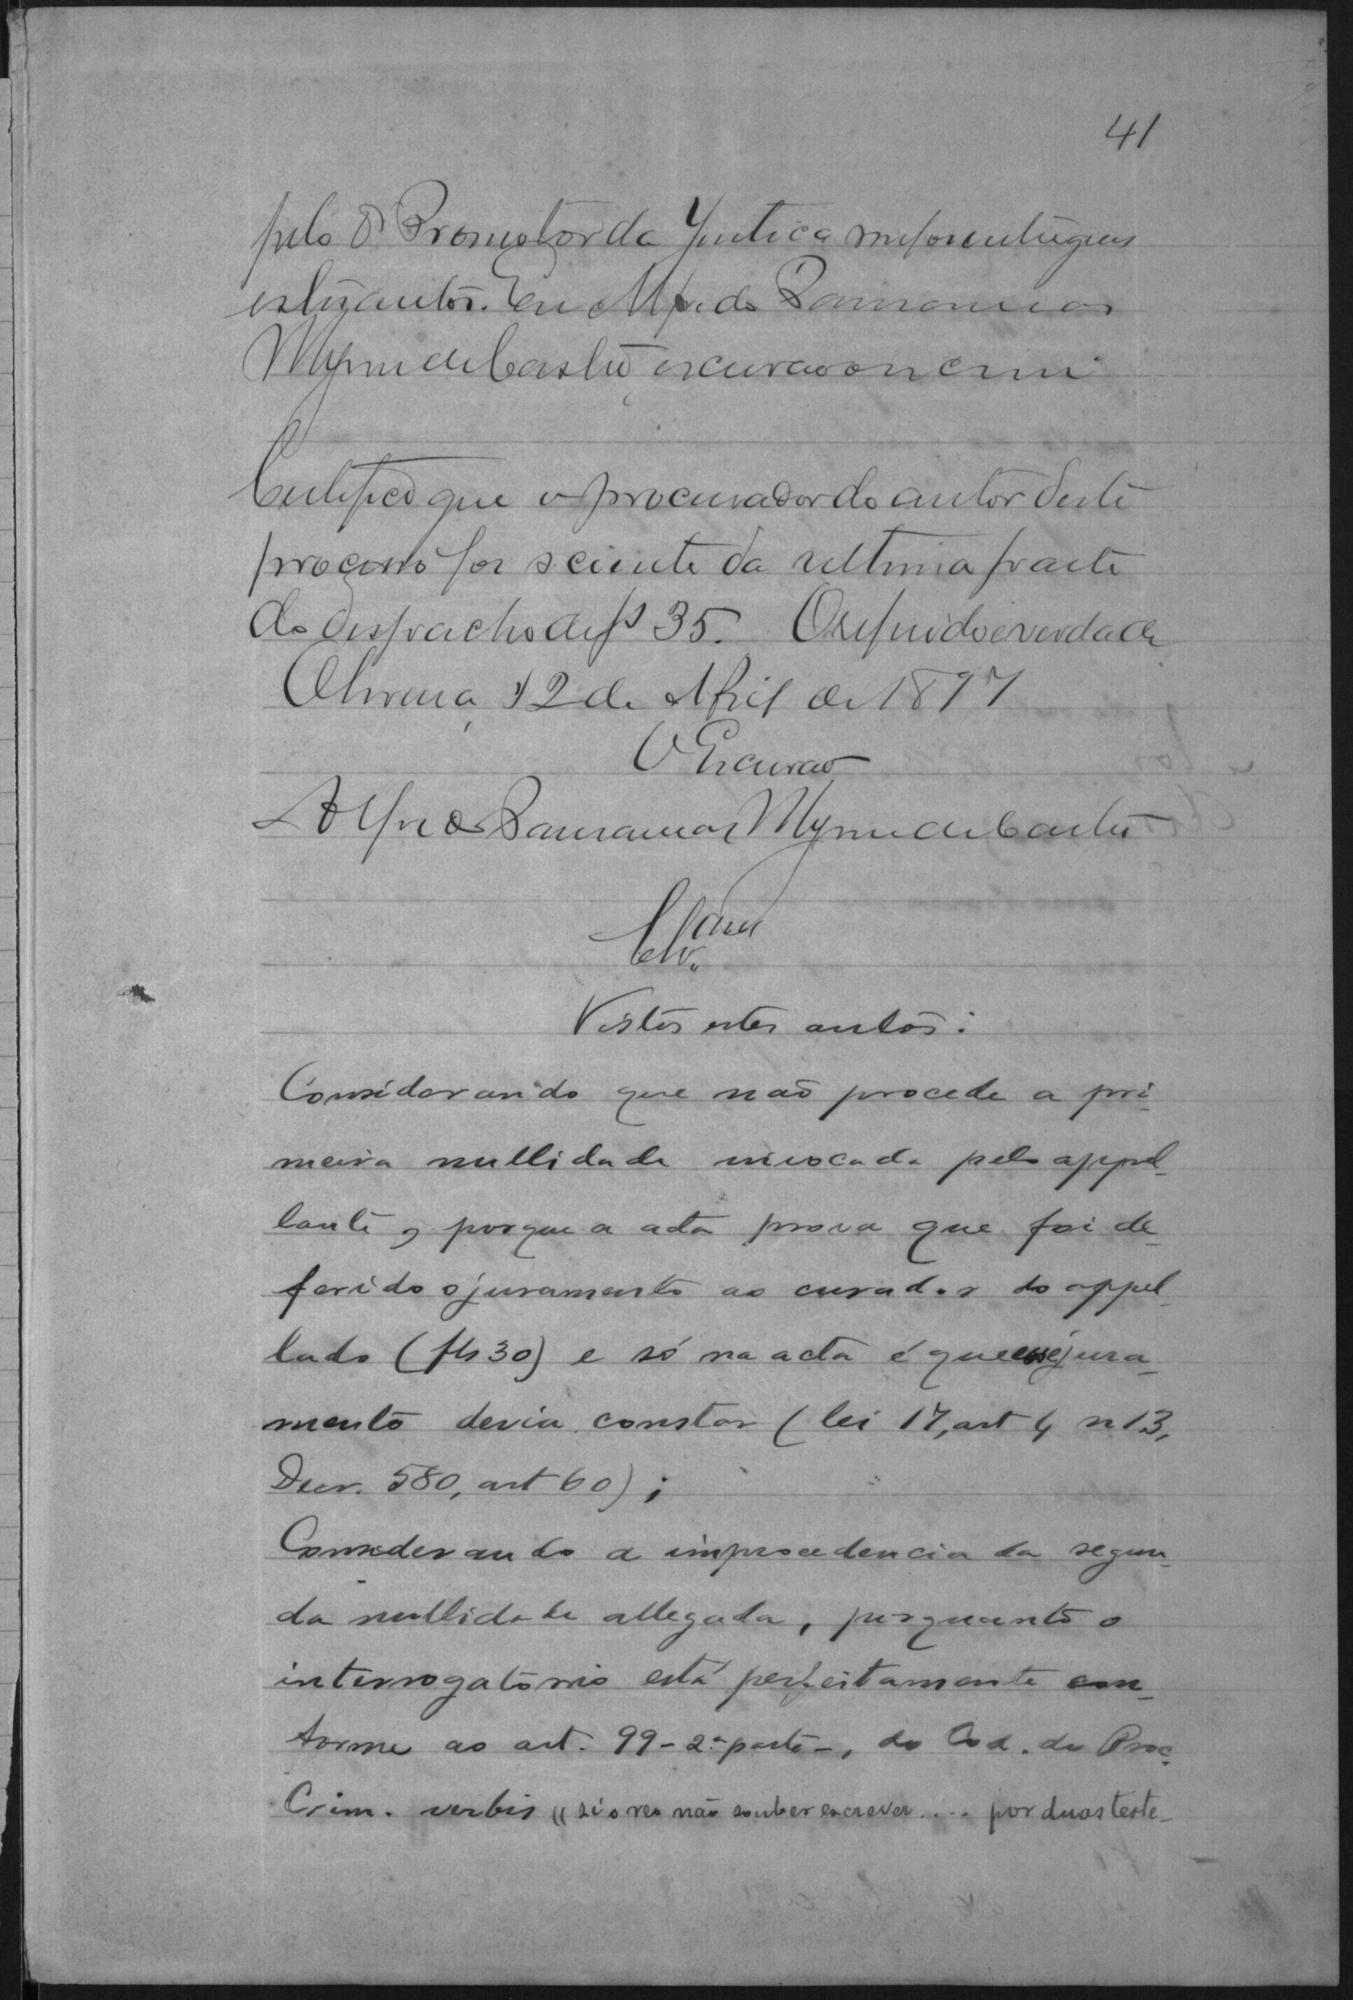 41
pelo Dr Promotor da Justica me foi entregues
estes autos. Eu Alfredo
de Castro escrivão o escrevi
Certifico que o procurador do autor deste
processo foi sciente da ultima parte
do despacho de fs 35. O referido é verdade
Oliveira, 12 de Abril de 1897
O Escrivão
Alfredo de Castro
Clsam
Vistos estes autos:
Considerando que não procede a pri-
meira nullidade invocada pelo appel-
lante, porque a acta prova que foi de-
ferido o juramento ao curador do appel-
lado (fls 30) e só na acta é que esse jura-
mento devia constar (lei 17, art 4 n 13,
Decr. 580, art 60);
Considerando a improcedencia da segun-
da nullidade allegada, porquanto o
interrogatorio está perfeitamente con-
forme ao art. 99 - 2ª parte -, do Cod. do Proc.
Crim. verbis "si o reo não souber escrever .... por duas teste-